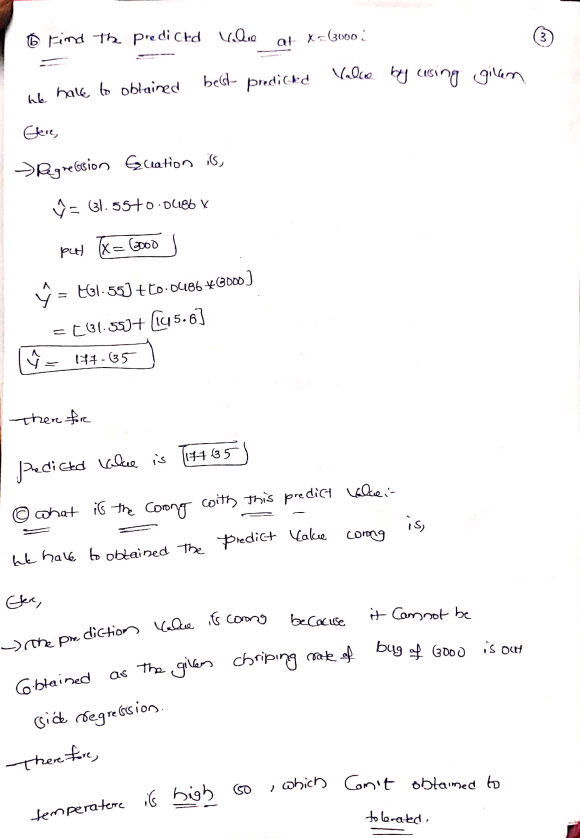 ③
ⓑ Find the predicted value at x=3000:
we have to obtained best predicted value by using given
Here,
→ Regression Equation is,
ŷ = 31.55+0.0486 x
put x = 3000
ŷ = [31.55] + [0.0486 * 3000]
= [31.55] + [145.8]
ŷ = 177.35
therefore
predicted value is 177.35
ⓒ what is the wrong with this predict value:-
we have to obtained the predict value wrong is,
Here,
→ the prediction value is wrong because it cannot be
obtained as the given chriping rate of bug of 3000 is out
side regression.
therefore,
temperature is high so, which can't obtained to
tolerated.